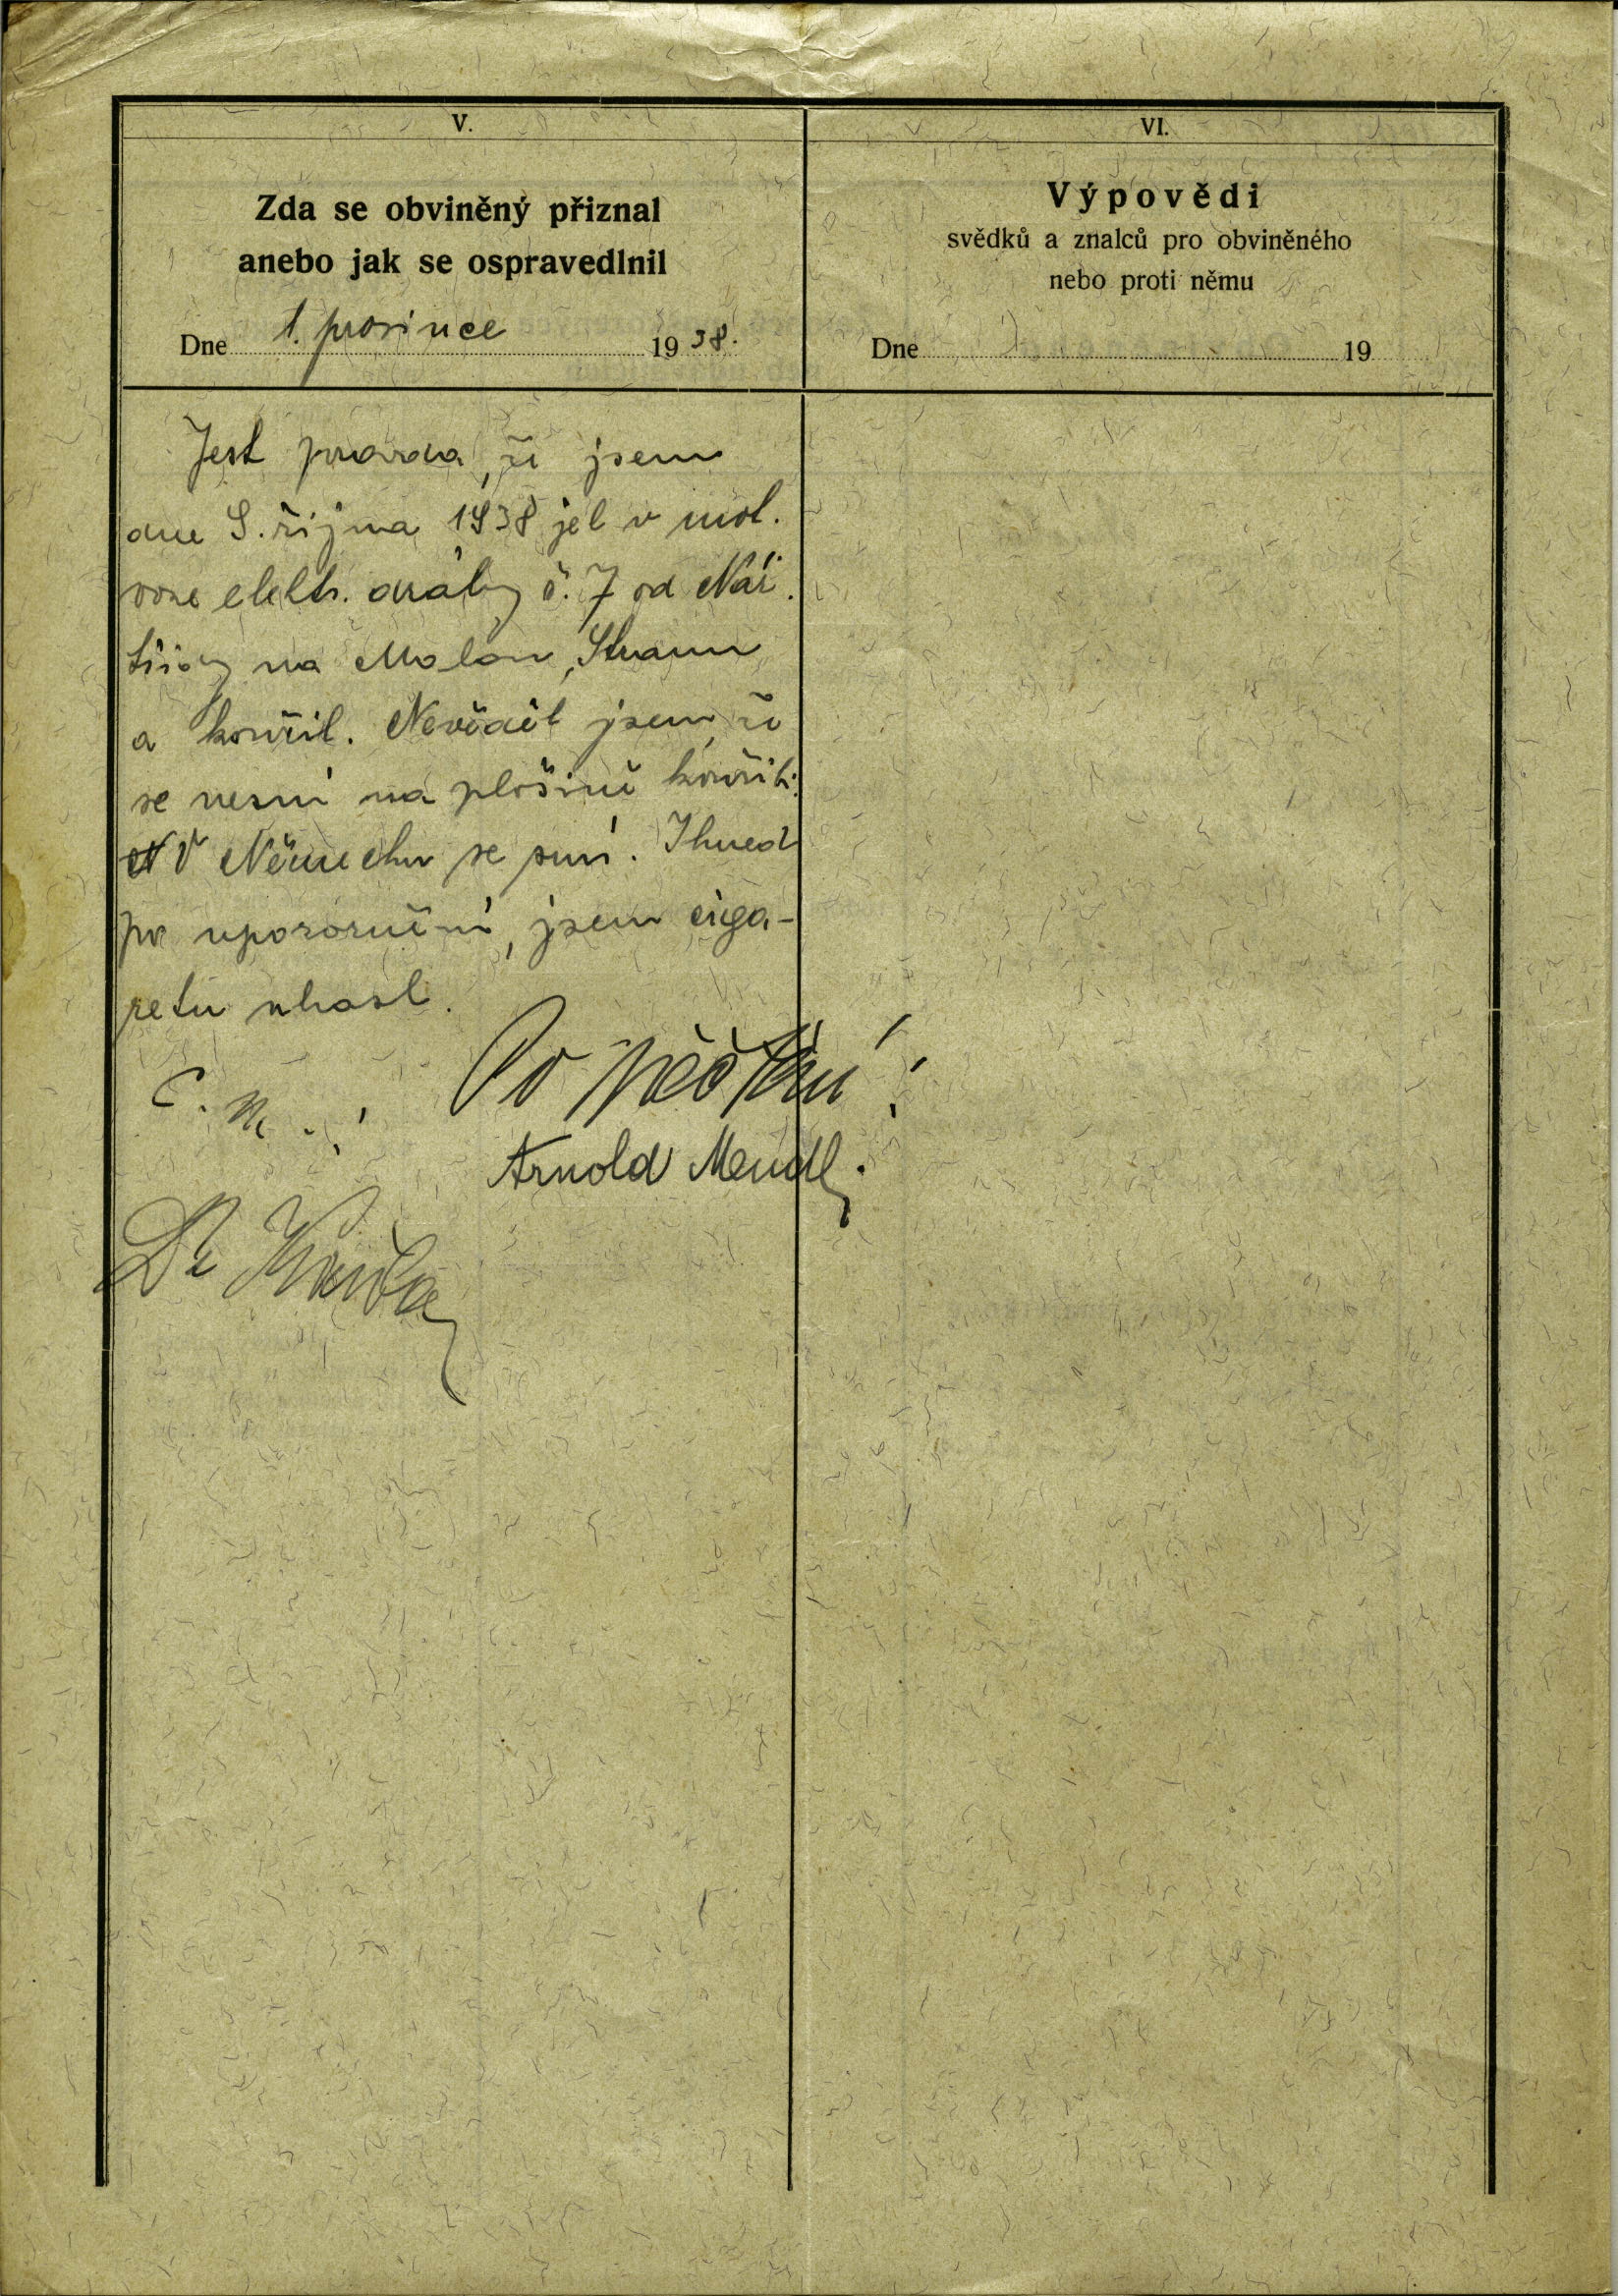 V.
Zda se obviněný přiznal
anebo jak se ospravedlnil
Dne 1. prosince 1938.
Jest pravda, že jsem
dne 9. října 1938 jel v mot.
voze elektr. dráhy č. 7 od Nár.
třídy na Malou Stranu
a kouřil. Nevěděl jsem, že
se nesmí na plošině kouřiti.
V Německu se smí. Ihned
po upozornění, jsem ciga-
retu uhasl.
Po přečtení:
Arnold Mendl.
Dr
VI.
Výpovědi
svědků a znalců pro obviněného
nebo proti němu
Dne 19